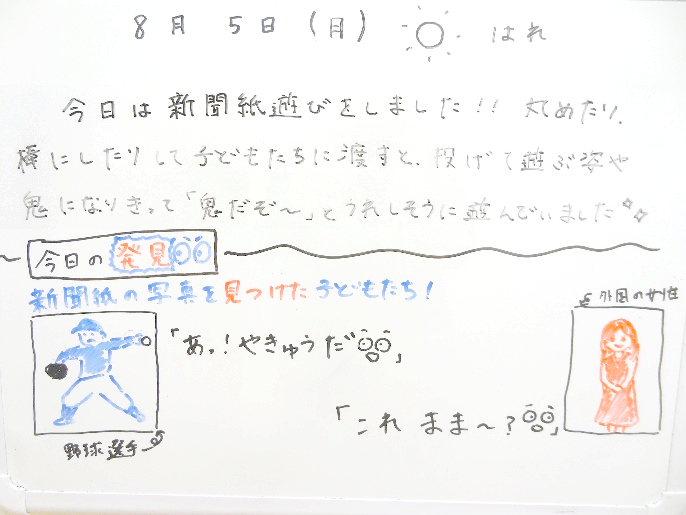 8月 5日 (月) はれ
今日は新聞紙遊びをしました!! 丸めたり、
棒にしたりして子どもたちに渡すと、投げて遊ぶ姿や
鬼になりきって「鬼だぞ～」とうれしそうに遊んでいました
今日の発見
新聞紙の写真を見つけた子どもたち!
外国の女性
「あっ!やきゅうだ」
「これ まま～?」
野球選手